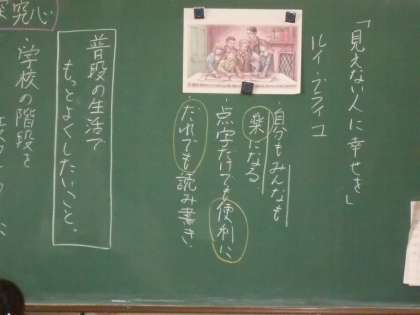 「見えない人に幸せを」
ルイ・ブライユ
・自分もみんなも
楽になる
・点字だけでも便利に
・だれでも読み書き
普段の生活で
もっとよくしたいこと。
・学校の階段を
究心